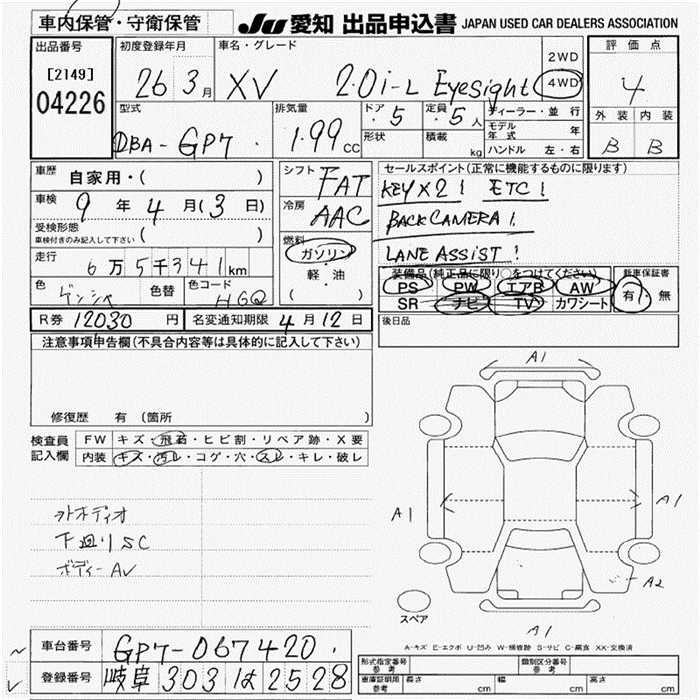 車内保管・守衛保管
JU 愛知 出品申込書 JAPAN USED CAR DEALERS ASSOCIATION
出品番号
[2149]
04226
初度登録年月
26 3月
車名・グレード
XV 2.0i-L Eyesight
2WD
4WD
評価点
4
外装 内装
B B
型式
DBA-GP7
排気量
1.99cc
ドア
5
形状
定員
5人
積載
kg
ディーラー・並行
モデル年式 年
ハンドル 左・右
車歴
自家用・( )
車検
9年4月(3日)
受検形態
車検付きのみ記入して下さい ( )
走行
6万5千341km
色 色替 色コード
HGQ
シフト
FAT
冷房
AAC
燃料
ガソリン
・
軽・油
( )
セールスポイント(正常に機能するものに限ります)
KEY×2! ETC!
BACK CAMERA!
LANE ASSIST!
装備品(純正品に限り○をつけてください)
PS PW エアB AW
SR ナビ TV カワシート
新車保証書
有・無
R券 12030円 名変通知期限 4月12日
後日品
注意事項申告欄(不具合内容等は具体的に記入して下さい)
修復歴 有(箇所
検査員記入欄
FW キズ・飛石・ヒビ割・リペア跡・X要
内装 キズ・汚レ・コゲ・穴・スレ・キレ・破レ
下廻りSC
ボディーAV
A1
A1
A1
A2
A1
スペア
A-キズ E-エクボ U-凹み W-補修跡 S-サビ C-腐食 XX-交換済
車台番号 GP7-067420
登録番号 岐阜 303 は 2528
形式指定番号 参考
類別区分番号 参考
車庫証明用 参考
長さ cm 幅 cm 高さ cm